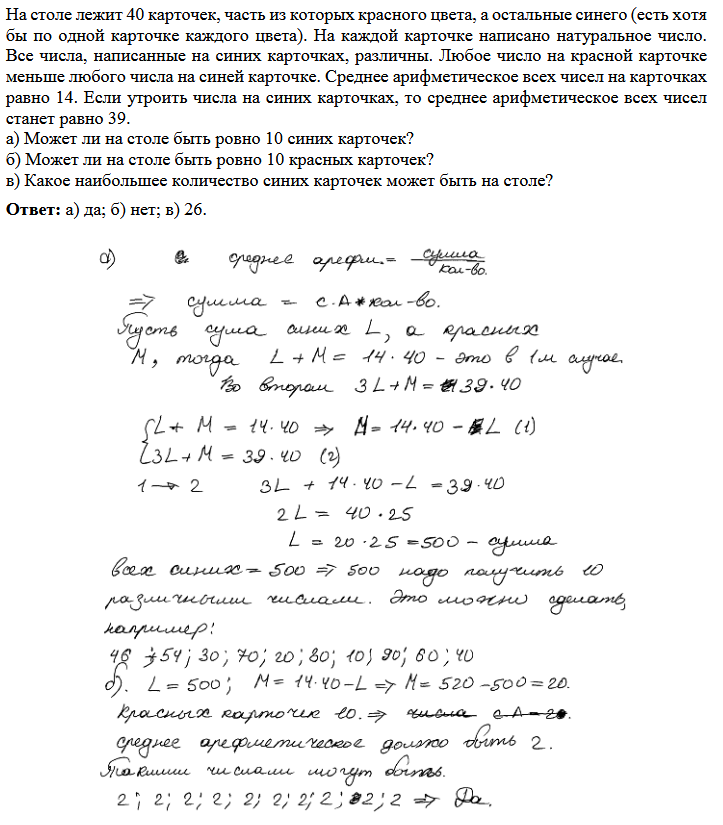 На столе лежит 40 карточек, часть из которых красного цвета, а остальные синего (есть хотя
бы по одной карточке каждого цвета). На каждой карточке написано натуральное число.
Все числа, написанные на синих карточках, различны. Любое число на красной карточке
меньше любого числа на синей карточке. Среднее арифметическое всех чисел на карточках
равно 14. Если утроить числа на синих карточках, то среднее арифметическое всех чисел
станет равно 39.
а) Может ли на столе быть ровно 10 синих карточек?
б) Может ли на столе быть ровно 10 красных карточек?
в) Какое наибольшее количество синих карточек может быть на столе?
Ответ: а) да; б) нет; в) 26.
а) среднее арефм. = сумма / кол-во.
=> сумма = с.А * кол-во.
Пусть сума синих L, а красных
M, тогда L + M = 14·40 - это в 1м случае.
Во втором 3L+M = 39·40
{L + M = 14·40 => M = 14·40 - L (1)
{3L+M = 39·40 (2)
1 → 2 3L + 14·40 - L = 39·40
2L = 40·25
L = 20·25 = 500 - сумма
всех синих = 500 => 500 надо получить 10
различными числами. Это можно сделать,
например:
46; 54; 30; 70; 20; 80; 10; 90; 60; 40
б). L = 500; M = 14·40 - L => M = 520 - 500 = 20.
Красных карточек 10. => числа с А = 20.
среднее арефметическое должо быть 2.
Такими числами могут быть.
2; 2; 2; 2; 2; 2; 2; 2; 2; 2 => Да.